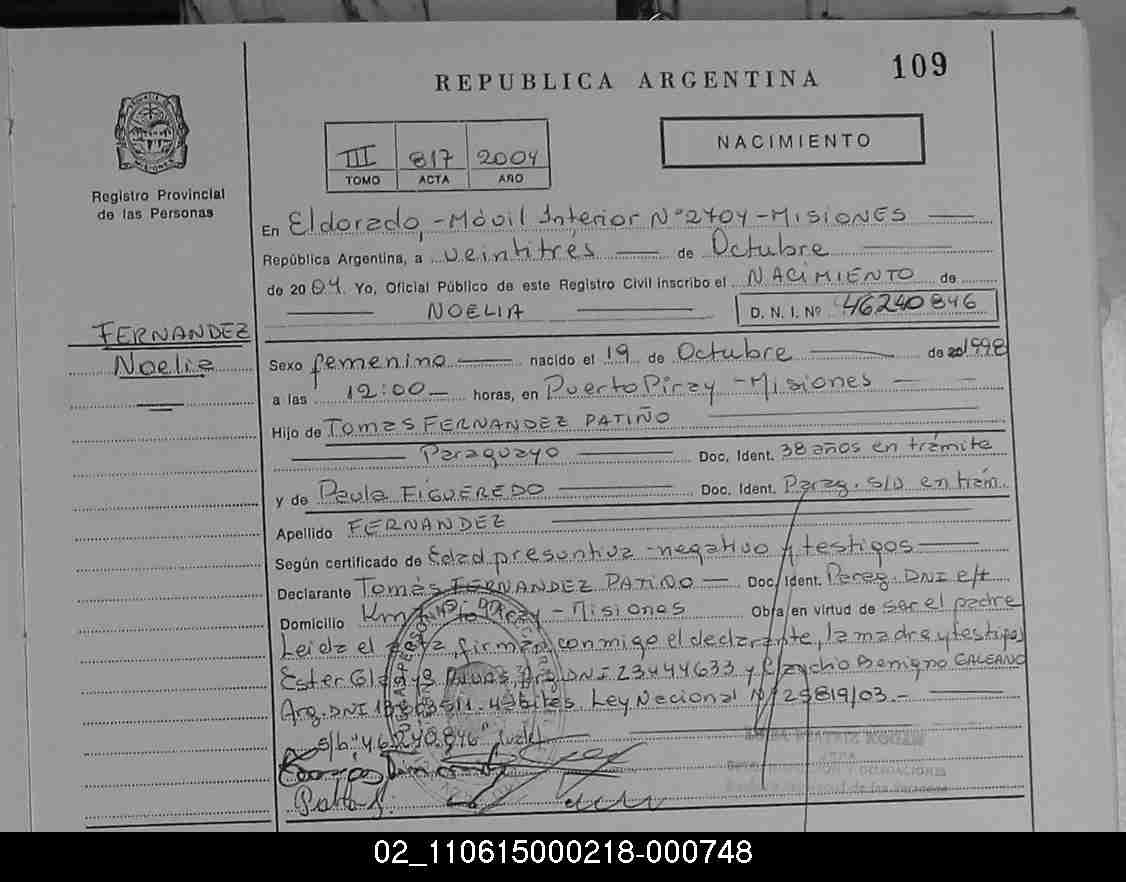 109
REPUBLICA ARGENTINA
NACIMIENTO
III 817 2004
TOMO ACTA AÑO
Registro Provincial
de las Personas
En Eldorado, -Móvil Interior Nº2404-MISIONES
República Argentina, a veintitres de Octubre
de 2004. Yo, Oficial Público de este Registro Civil inscribo el NACIMIENTO de
NOELIA D. N. I. Nº 46240846
FERNANDEZ
Noelia
Sexo femenino nacido el 19 de Octubre de 20 1998
a las 12:00 horas, en Puerto Piray - Misiones
Hijo de Tomas FERNANDEZ PATIÑO
Paraguayo Doc. Ident. 38 años en trámite
y de Paula FIGUEREDO Doc. Ident. Parag. s/D en trám.
Apellido FERNANDEZ
Según certificado de Edad presuntiva - negativo y testigos
Declarante Tomás FERNANDEZ PATIÑO Doc. Ident. Parag. DNI e/t
Domicilio Km Piray - Misiones Obra en virtud de ser el padre
Leida el acta, firman conmigo el declarante, la madre y testigos
Ester Gladys Arg. DNI 23444633 y Benigno GALEANO
Arg. DNI Ley Nacional Nº 25819/03.-
s/b "46240846" vale
02_110615000218-000748